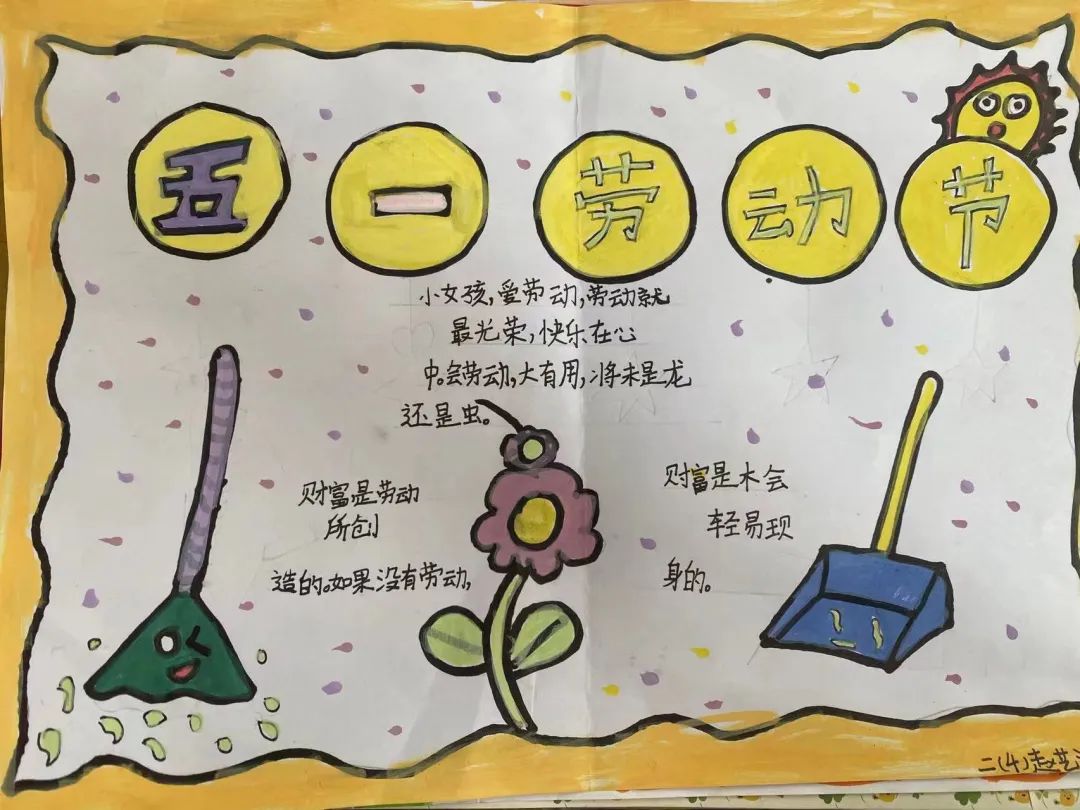 五一劳动节
小女孩,爱劳动,劳动就
最光荣,快乐在心
中。会劳动,大有用,将未是龙
还是虫。
财富是劳动
所创
造的。如果没有劳动,
财富是木会
轻易现
身的。
二(4)赵艺